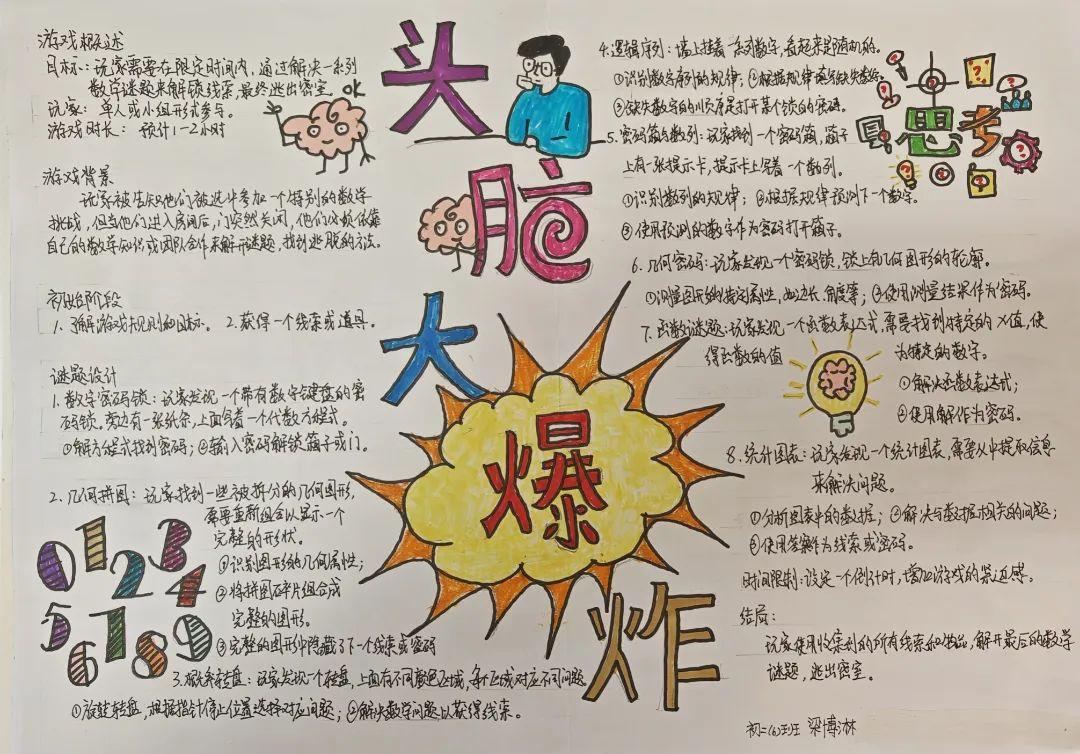 头脑大爆炸
思考
OK
游戏概述
目标：玩家需要在限定时间内，通过解决一系列
数学谜题来解锁线索，最终逃出密室。
玩家：单人或小组形式参与。
游戏时长：预计1-2小时
游戏背景
玩家被告知他们被选中参加一个特别的数学
挑战，但当他们进入房间后，门突然关闭，他们必须依靠
自己的数学知识或团队合作来解开谜题，找到逃脱的方法。
初始阶段
1.了解游戏规则和目标。 2.获得一个线索或道具。
谜题设计
1.数字密码锁：玩家发现一个带有数字键盘的密
码锁。旁边有一张纸条，上面写着一个代数方程式。
①解方程式找到密码；②输入密码解锁箱子或门。
2.几何拼图：玩家找到一些被拆分的几何图形，
需要重新组合以显示一个
完整的形状。
①识别图形的几何属性；
②将拼图碎片组合成
完整的图形。
③完整的图形中隐藏了下一个线索或密码
0 1 2 3 4
5 6 7 8 9
3.概率转盘：玩家发现一个转盘，上面有不同颜色区域，每个区域对应不同问题
①旋转转盘，根据指针停止位置选择对应问题；②解决数学问题以获得线索。
4.逻辑序列：墙上挂着一系列数字，看起来是随机的。
①识别数字序列的规律；②根据规律填写缺失数字。
③缺失数字的顺序是打开某个锁的密码。
5.密码箱与数列：玩家找到一个密码箱，箱子
上有一张提示卡，提示卡上写着一个数列。
①识别数列的规律；②根据规律预测下一个数字。
③使用预测的数字作为密码打开箱子。
6.几何密码：玩家发现一个密码锁，锁上有几何图形的轮廓。
①测量图形的特定属性，如边长、角度等；②使用测量结果作为密码。
7.函数谜题：玩家发现一个函数表达式，需要找到特定的X值，使
得函数的值
为特定的数字。
①解决函数表达式；
②使用解作为密码。
8.统计图表：玩家发现一个统计图表，需要从中提取信息
来解决问题。
①分析图表中的数据；②解决与数据相关的问题；
③使用答案作为线索或密码。
时间限制：设定一个倒计时，增加游戏的紧迫感。
结局：
玩家使用收集到的所有线索和物品，解开最后的数学
谜题，逃出密室。
初二(6)班 梁博淋